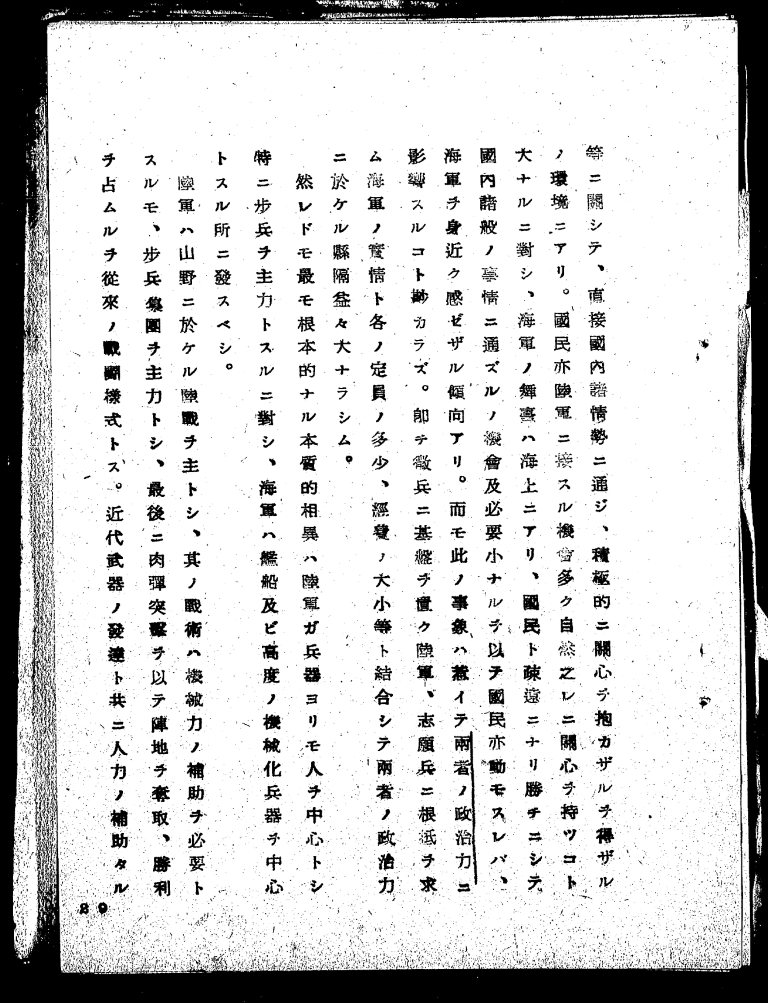 等ニ關シテ、直接國內諸情勢ニ通ジ、積極的ニ關心ヲ抱カザルヲ得ザル
ノ環境ニアリ。國民亦陸軍ニ接スル機會多ク自然之レニ關心ヲ持ツコト
大ナルニ對シ、海軍ノ舞臺ハ海上ニアリ、國民ト疎遠ニナリ勝チニシテ
國內諸般ノ事情ニ通ズルノ機會及必要小ナルヲ以テ國民亦動モスレバ、
海軍ヲ身近ク感ゼザル傾向アリ。而モ此ノ事象ハ惹イテ兩者ノ政治力ニ
影響スルコト尠カラズ。卽チ徵兵ニ基礎ヲ置ク陸軍、志願兵ニ根柢ヲ求
ム海軍ノ實情ト各ノ定員ノ多少、經費ノ大小等ト結合シテ兩者ノ政治力
ニ於ケル縣隔益々大ナラシム。
然レドモ最モ根本的ナル本質的相異ハ陸軍ガ兵器ヨリモ人ヲ中心トシ
特ニ步兵ヲ主力トスルニ對シ、海軍ハ艦船及ビ高度ノ機械化兵器ヲ中心
トスル所ニ發スベシ。
陸軍ハ山野ニ於ケル陸戰ヲ主トシ、其ノ戰術ハ機械力ノ補助ヲ必要ト
スルモ、步兵集團ヲ主力トシ、最後ニ肉彈突擊ヲ以テ陣地ヲ奪取、勝利
ヲ占ムルヲ從來ノ戰鬪樣式トス。近代武器ノ發達ト共ニ人力ノ補助タル
89